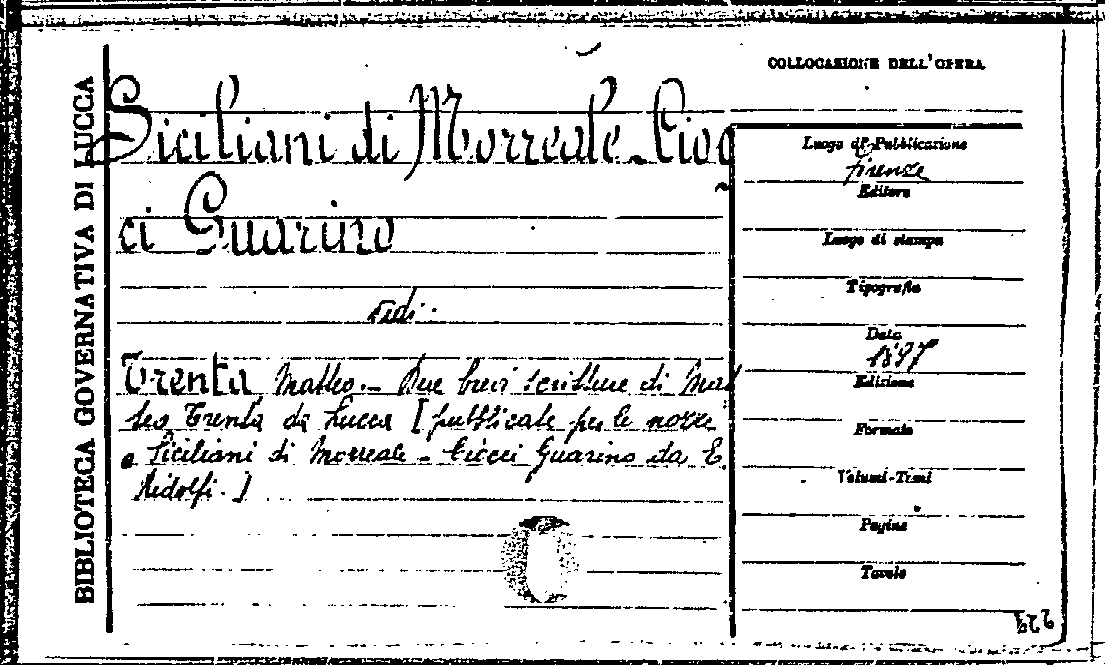 BIBLIOTECA GOVERNATIVA DI LUCCA
COLLOCAZIONE DELL'OPERA
Siciliani di Morreale - Cioc
ci Guarino
vedi.
Trenta Matteo. - Due brevi scritture di Mat
teo Trenta da Lucca [pubblicate per le nozze
Siciliani di Morreale - Ciocci Guarino da E.
Ridolfi.]
Luogo di Pubblicazione
Firenze
Editore
Luogo di stampa
Tipografia
Data
1897
Edizione
Formato
Volumi-Tomi
Pagine
Tavole